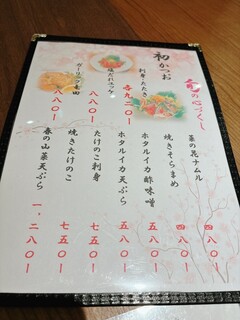 春の心づくし
菜の花ナムル
四八〇ー
焼きそらまめ
四八〇ー
ホタルイカ酢味噌
五八〇ー
ホタルイカ天ぷら
五八〇ー
たけのこ刺身
七五〇ー
焼きたけのこ
七五〇ー
春の山菜天ぷら
一、二八〇ー
初かつお
刺身・たたき
各九二〇ー
塩だれユッケ
八八〇ー
ガーリック竜田
八八〇ー